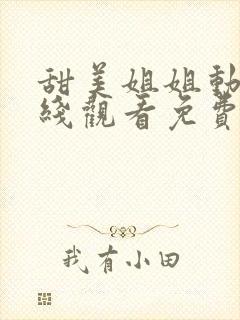 甜美姐姐動
綫觀看免費
我有小田